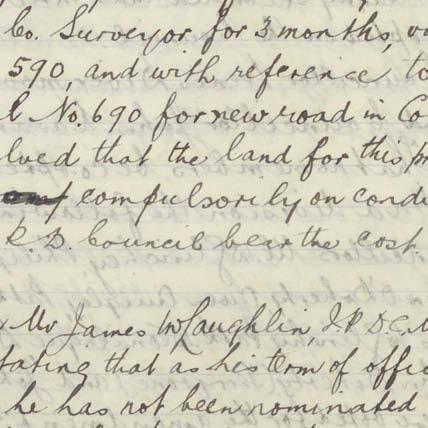 Co. Surveyor for 3 months,
590, and with reference to
No. 690 for new road in Co
lved that the land for this pr
compulsorily on condi
R. D. Council bear the cost.
Mr James McLaughlin, J.P. D.C.
tating that as his term of offic
he has not been nominated